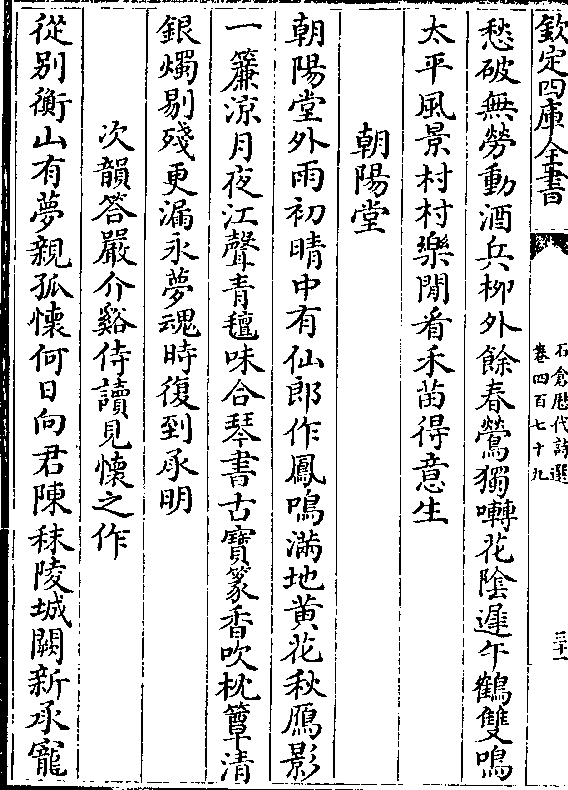 欽定四庫全書
石倉歷代詩選
卷四百七十九
三十一
愁破無勞動酒兵柳外餘春鶯獨囀花陰遲午鶴雙鳴
太平風景村村樂閒看禾苗得意生
朝陽堂
朝陽堂外雨初晴中有仙郎作鳳鳴滿地黄花秋鴈影
一簾涼月夜江聲青氊味合琴書古寶篆香吹枕簟清
銀燭剔殘更漏永夢魂時復到承明
次韻答嚴介谿侍讀見懷之作
從别衡山有夢親孤懷何日向君陳秣陵城闕新承寵